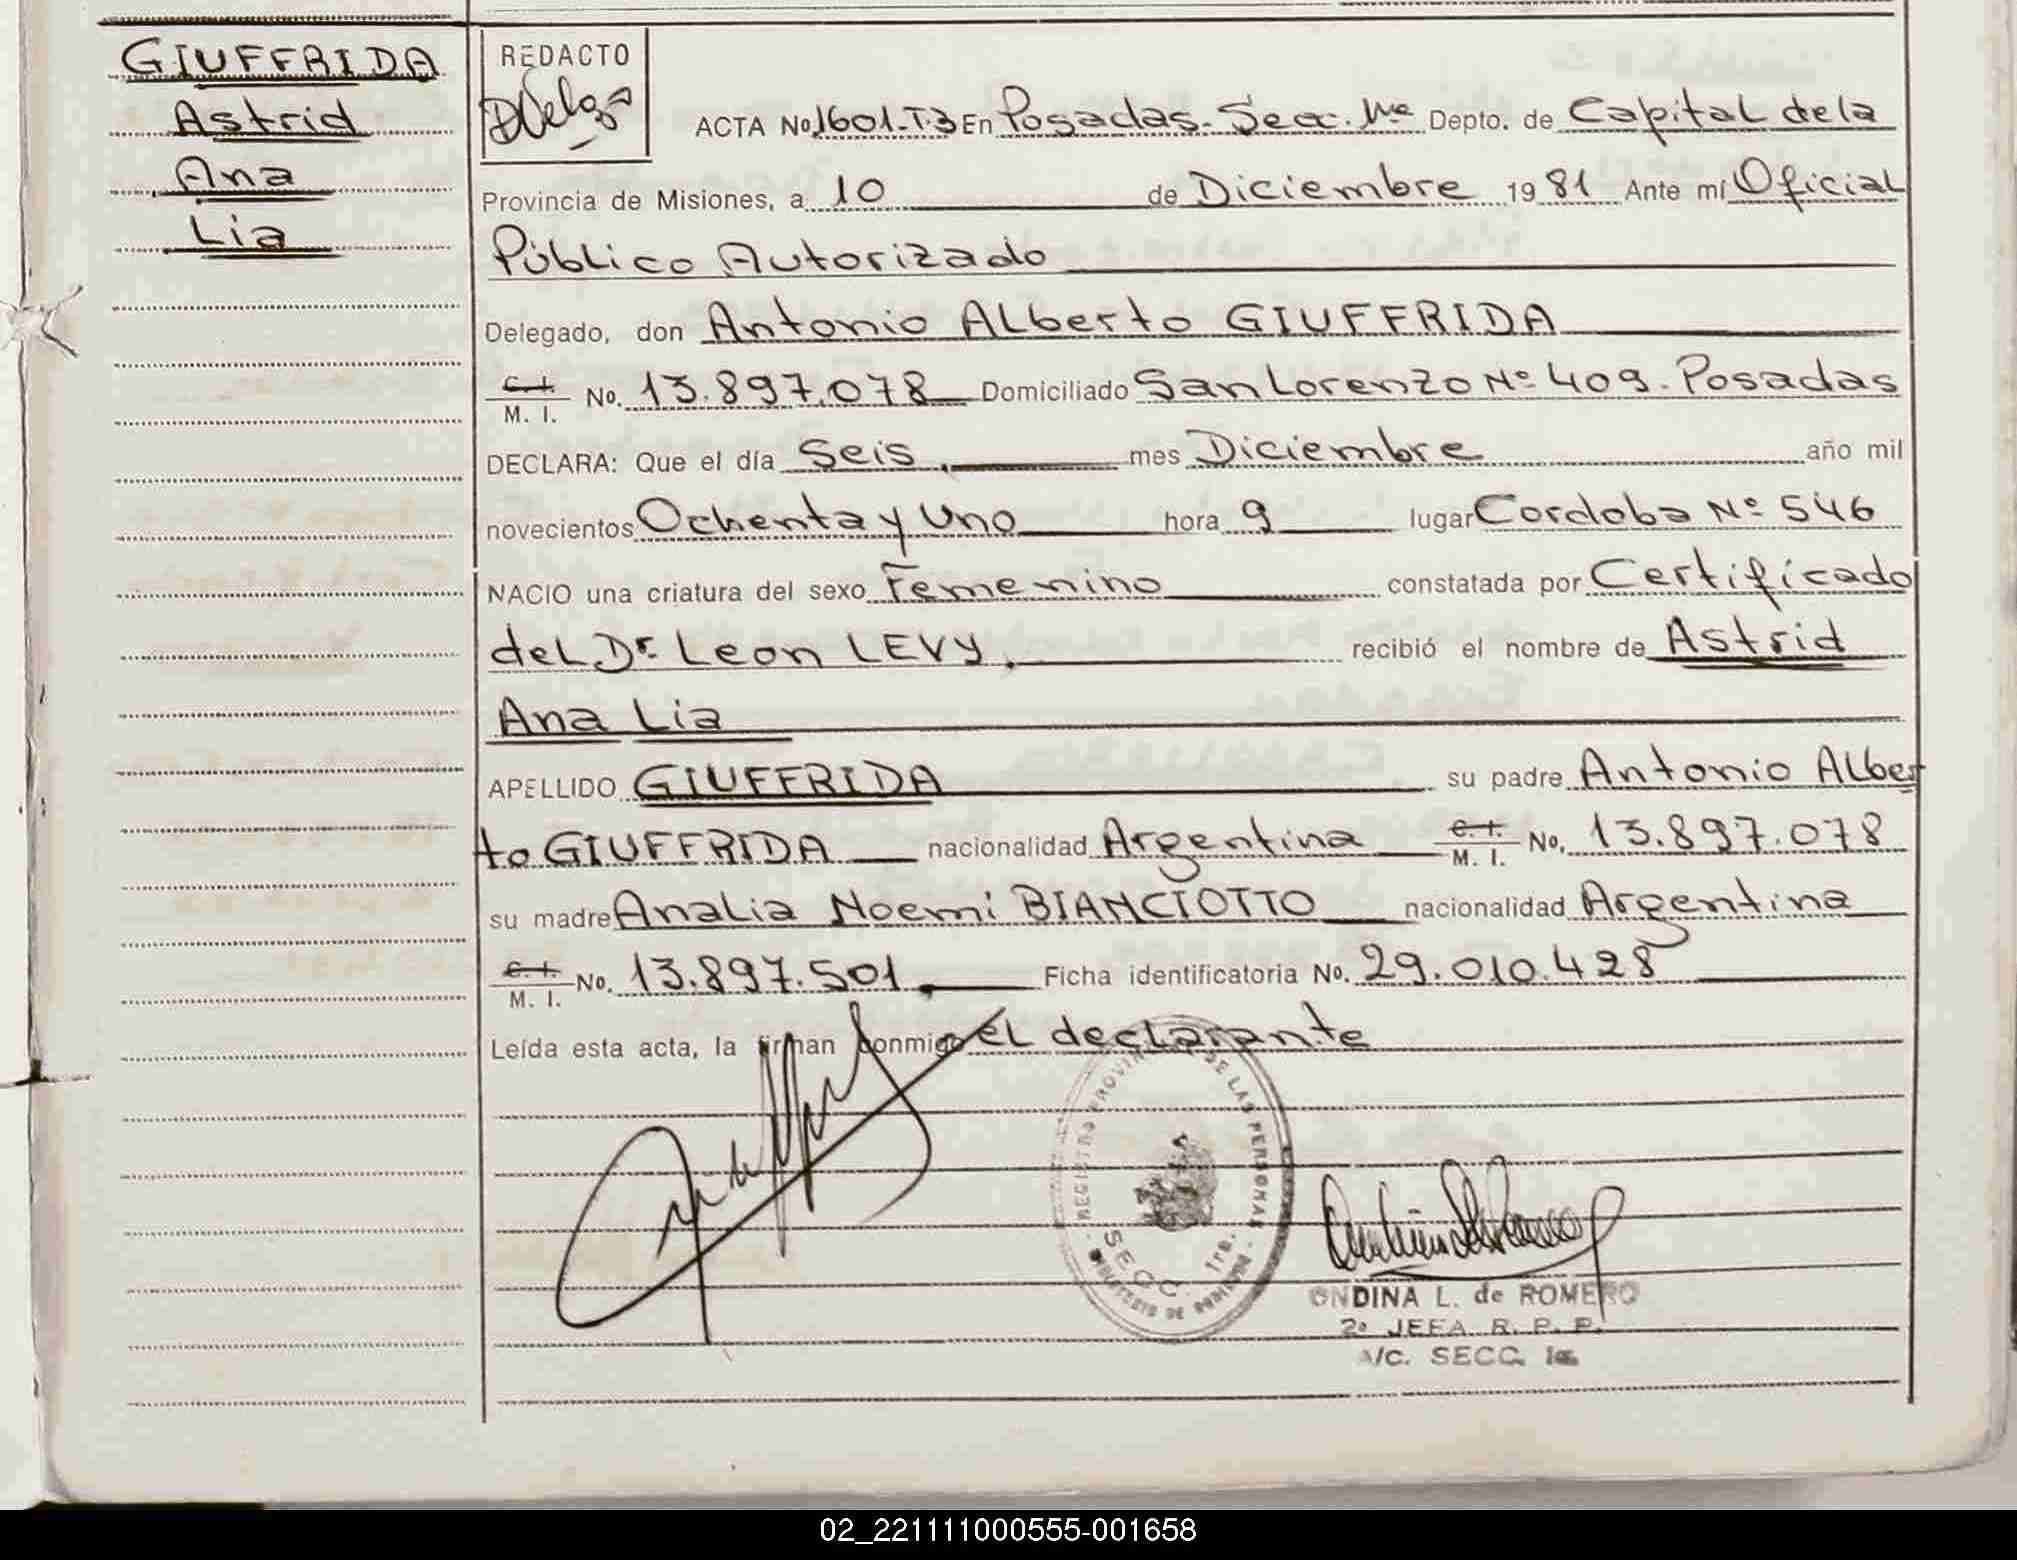 GIUFFRIDA
Astrid
Ana
Lia
REDACTO
ACTA No 1601-T.3 En Posadas-Secc. 1ra Depto. de Capital de la
Provincia de Misiones, a 10 de Diciembre 19 81 Ante mí Oficial
Público Autorizado
Delegado, don Antonio Alberto GIUFFRIDA
C.I. M. I. No. 13.897.078 Domiciliado San Lorenzo Nº 409. Posadas
DECLARA: Que el día Seis. mes Diciembre año mil
novecientos Ochenta y Uno hora 9 lugar Cordoba Nº 546
NACIO una criatura del sexo Femenino constatada por Certificado
del Dr. Leon LEVY. recibió el nombre de Astrid
Ana Lia
APELLIDO GIUFFRIDA su padre Antonio Alber
to GIUFFRIDA nacionalidad Argentina C.I. M. I. No. 13.897.078
su madre Analia Noemi BIANCIOTTO nacionalidad Argentina
C.I. M. I. No. 13.897.501. Ficha identificatoria No. 29.010.428
Leída esta acta, la firman conmigo el declarante
REGISTRO PROVINCIAL DE LAS PERSONAS
SECC. 1ra.
ONDINA L. de ROMERO
2º JEFA R. P. P.
A/C. SECC. 1a.
02_221111000555-001658